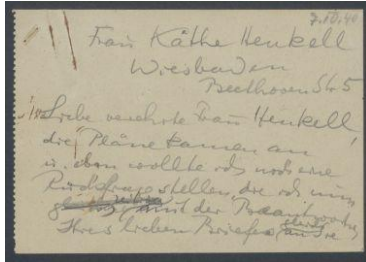 7.10.40
Frau Käthe Henkell
Wiesbaden
Beethoven Str 5
Liebe verehrte Frau Henkell,
die Pläne kamen an
u. eben wollte ich noch eine
Rückfrage stellen, die ich nun
mit der Beantwortung
Ihres lieben Briefes